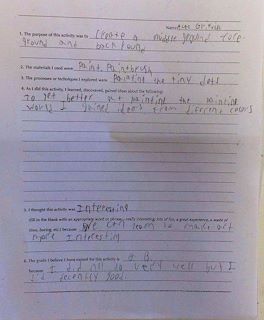 Name
1. The purpose of this activity was to Create a middle ground fore-
ground and background
2. The materials I used were Paint, Paintbrush
3. The processes or techniques I explored were Painting the tiny dots
4. As I did this activity, I learned, discovered, gained ideas about the following:
To get better at painting the painting
I gained ideas from different colors
5. I thought this activity was Interesting
(fill in the blank with an appropriate word or phrase: really interesting, lots of fun, a great experience, a waste of
time, boring, etc.) because We can learn to make art
more interesting
6. The grade I believe I have earned for this activity is a B
because I did not do very well but I
did decently good